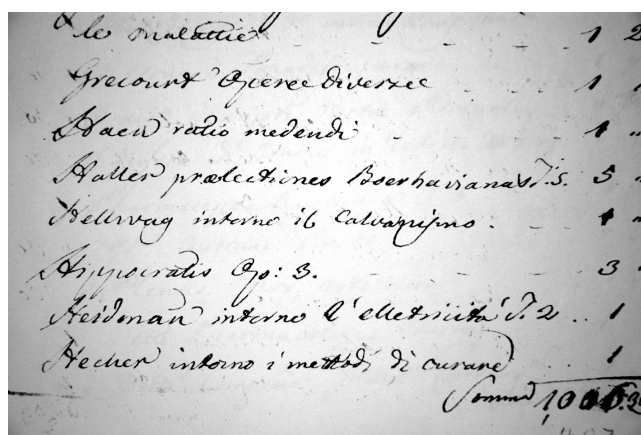 le malattie 1 2
Grecourt Operee Diverzee 1 "
Haen ratio medendi 1 "
Haller prælectiones Boerhavianas T. 5. 5 "
Hellwag interno il Galvanismo. 1 "
Hippocratis Op: 3. 3 "
Heidman interno l'elletricità T. 2 .. 1
Hecher intorno i metodi di curare 1
Somma